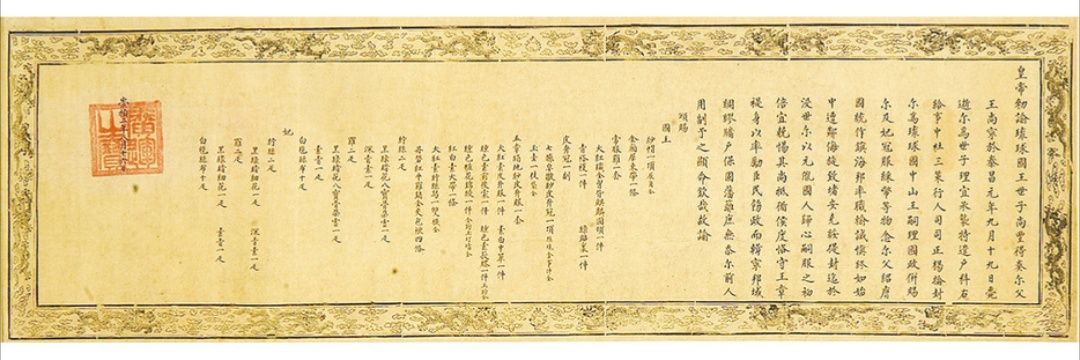 皇帝勅諭琉球國王世子尚豐得奏尔父
王尚寧於泰昌元年九月十九日薨
逝尔為世子理宜承襲特遣户科右
給事中杜三策行人司司正楊掄封
尔為琉球國中山王嗣理國政併賜
尔及妃冠服綵幣等物念尔父紹膺
國統作鎮海邦率職輸誠慎終如始
中遭鄰侮旋致堵安克荷提封迄於
浸世尔以元儲國人歸心嗣服之初
倍宜兢惕其尚祗循侯度恪守王章
禔身以率勵臣民飭政而輯寧邦域
綢繆牖户保固藩籬庶無忝尔前人
用副予之顯命欽哉故諭
頒賜
國王
紗帽一頂展角全
金廂犀束帶一條
常服羅一套
大紅織金胷背麒麟圓領一件
青褡𧞤一件 綠貼裏一件
皮弁冠一副
七旒皂皺紗皮弁冠一頂旒珠金事件全
玉圭一枝袋全
五章絹地紗皮弁服一套
大紅素皮弁服一件 素白中單一件
纁色素前後裳一件 纁色素蔽膝一件玉鈎全
纁色粧花錦綬一件金鈎玉玎璫全
紅白素大帶一條
大紅素紵絲舄一雙襪全
丹礬紅平羅銷金夾包袱四條
紵絲二疋
黑綠暗花八寳骨朶雲一疋
深青素一疋
羅二疋
黑綠暗花八寳骨朶雲一疋
青素一疋
白㲲絲布十疋
妃
紵絲二疋
黑綠暗細花一疋 深青素一疋
羅二疋
黑綠暗細花一疋 青素一疋
白㲲絲布十疋